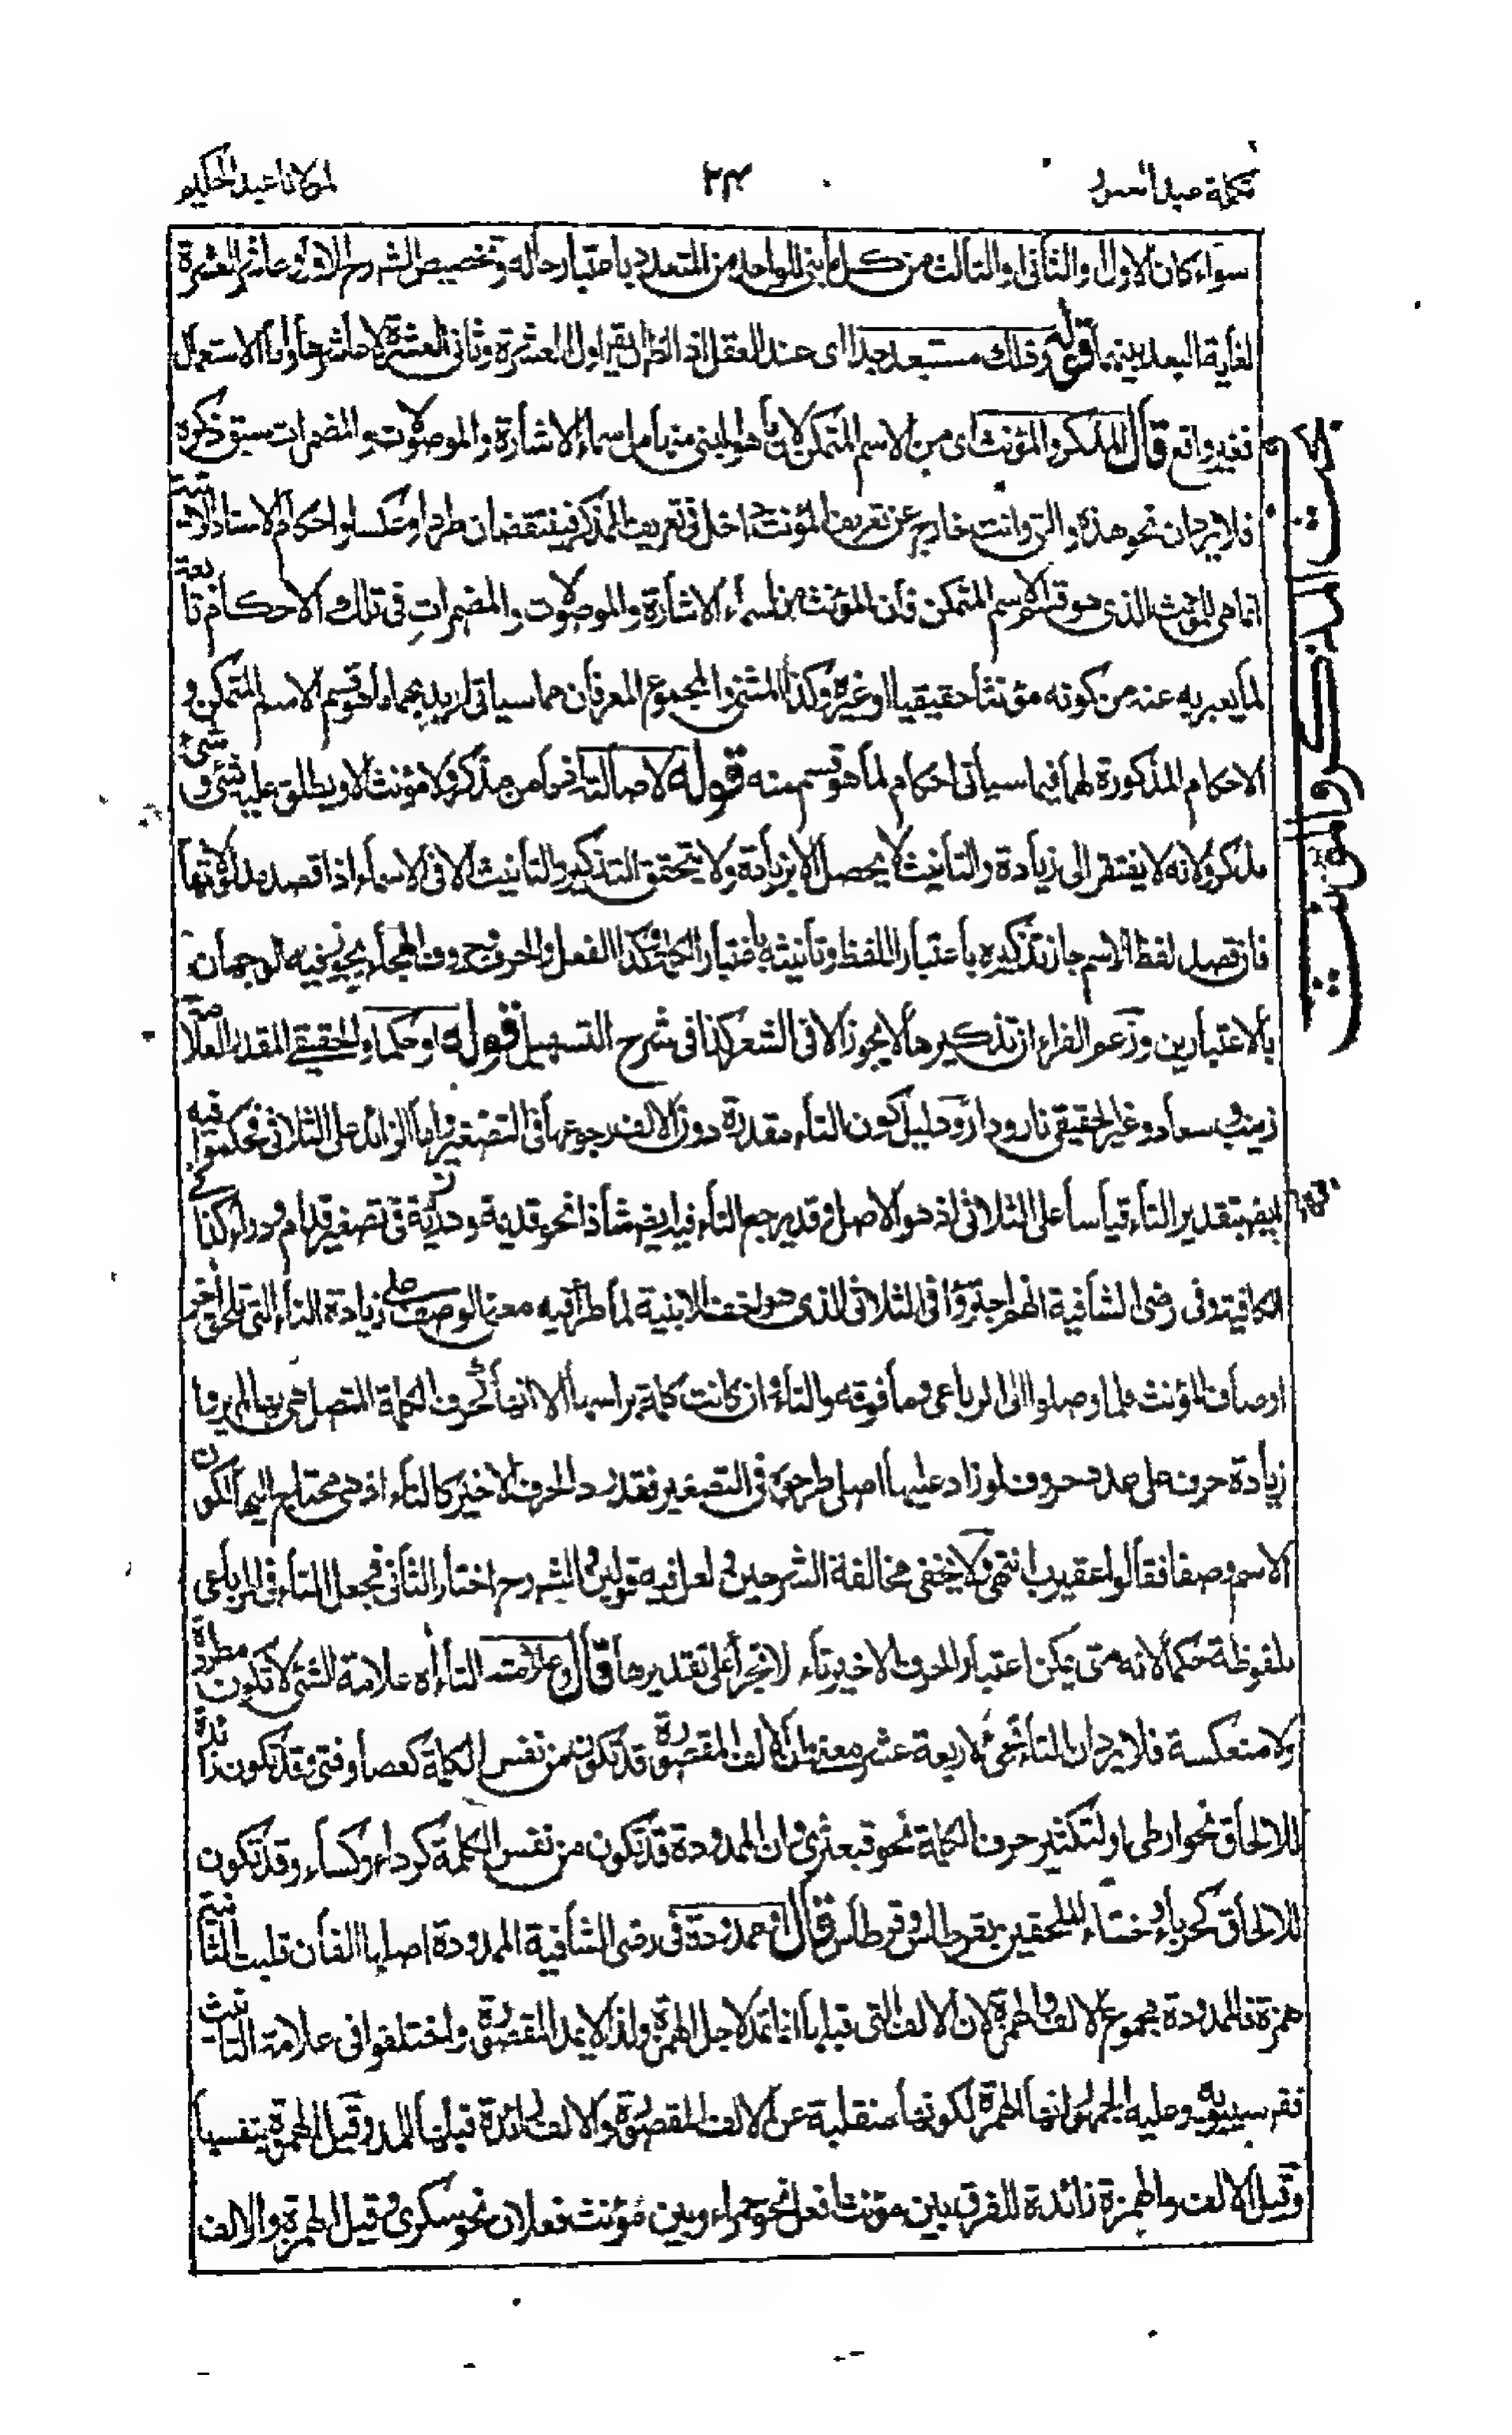 تكملة عبد الغفور ٢٤ لمولانا عبد الحكيم
سواء كان الاول او الثانى او الثالث من كل ما بنى للواحد من المتعدد باعتبار حاله وتخصيص الشروح الاول و عاشر العشرة
لغاية البعد بينهما قوله وذلك مستبعد جدا اى عند العقل اذ اول العشرة وثانى العشرة واما الاستعمال
فغير واقع قال المذكر والمؤنث اى من الاسم المتمكن لان ما هو المبنى منهما من اسماء الاشارة والموصولات والمضمرات سبق ذكره
فلا يرد ان نحو هذه والتى وانت خارج عن تعريف المؤنث داخل فى تعريف المذكر فينتقضان طردا وعكسا واحكام الاسناد الاتية
انما هى للمؤنث الذى هو قسم الاسم المتمكن فان المؤنث من اسماء الاشارة والموصولات والمضمرات فى تلك الاحكام تابعة
لما يعبر به عنه من كونه مؤنثا حقيقيا او غيره وكذا المثنى والمجموع المعرفان مما سياتى اريد بهما ما هو قسم الاسم المتمكن و
الاحكام المذكورة لهما فيما سياتى احكام لما هو قسم منه قوله لاصالته فما من مذكر ولا مؤنث الا ويطلق عليه شئ وشئ
مذكر ولانه لا يفتقر الى زيادة والتأنيث لا يحصل الا بزيادة ولا يتحقق التذكير والتأنيث الا فى الاسماء اذا قصد مدلولاتها
فان قصد لفظ الاسم جاز تذكيره باعتبار اللفظ وتأنيثه باعتبار الكلمة وكذا الفعل والحرف وحروف الهجاء يجوز فيه الوجهان
بالاعتبارين وزعم الفراء ان تذكيرها لا يجوز الا فى الشعر كذا فى شرح التسهيل قوله او حكما والحقيقى المقدر العلامة
زينب وسعاد وغير الحقيقى نار ودار ودليل كون التاء مقدرة دون الالف رجوعها فى التصغير واما الزائد على الثلاثى فحكموا فيه
ايضا بتقدير التاء قياسا على الثلاثى اذ هو الاصل وقد يرجع التاء فيه ايضا شاذا نحو قديديمة ووريئة فى تصغير قدام ووراء كذا فى
الكافية وفى رضى الشافية انهم اجترؤا فى الثلاثى الذى هو اخف الابنية لما طرأ فيه معنى الوصف على زيادة التاء التى تلحق اخر
اوصاف المؤنث فلما وصلوا الى الرباعى وما فوقه والتاء وان كانت كلمة براسها الا انها كحرف الكلمة المتصل هى بها لم يروا
زيادة حرف على عدد حروف لو زاد عليها اصلى طرحوه فى التصغير فقدروا الحرف الاخير كالتاء اذ هى محتاج اليها لكون
الاسم وصفا فقالوا عقيرب انتهى ولا يخفى مخالفة الشرحين ولعل فيه قولين والشروح اختار الثانى فجعل التاء فى الرباعى
ملفوظة حكما لانه متى يمكن اعتبار الحرف الاخير تاء لا نجترأ على تقديرها قال وعلامته التاء اه علامة الشئ لا تكون مطردة
ولا منعكسة فلا يرد ان التاء تجئ لاربعة عشر معنى وان الالف المقصورة قد تكون من نفس الكلمة كعصا وفتى وقد تكون زائدة
للالحاق نحو ارطى او لتكثير حرف الكلمة نحو قبعثرى وان الممدودة قد تكون من نفس الكلمة كرداء وكساء وقد تكون
للالحاق كحرباء وخشاء للملحقين بقرطاس وقرطاس قال ممدودة فى رضى الشافية الممدودة اصلها الفان قلبت الثانية
همزة فالممدودة مجموع الالف والهمزة لان الالف التى قبلها انما تمد لاجل الهمزة ولذا لا يمد المقصورة واختلفوا فى علامة التانيث
فقم سيبويه وعليه الجمهور انها الهمزة لكونها منقلبة عن الالف المقصورة والالف زائدة قبلها للمد وقيل الهمزة بنفسها
وقيل الالف والهمزة زائدة للفرق بين مؤنث افعل نحو حمراء وبين مؤنث فعلان نحو سكرى وقيل الهمزة والالف
بحث المذكر والمؤنث